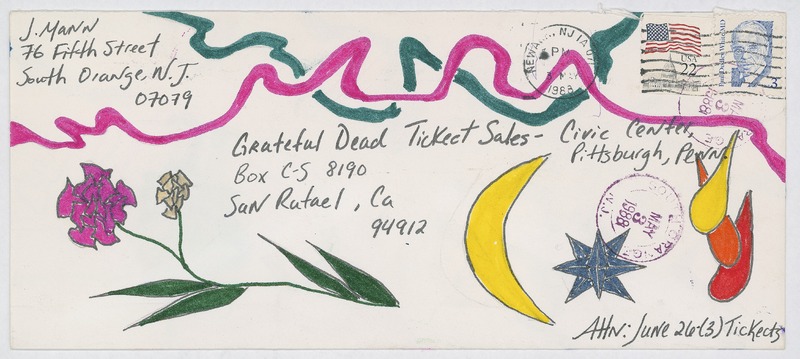 J. MANN
76 Fifth Street
South Orange, N.J.
07079
Grateful Dead Tickect Sales - Civic Center,
Pittsburgh, Penn.
Box C-S 8190
San Rafael, Ca
94912
NEWARK, NJ
PM
1988
USA
22
3
SOUTH ORANGE
N.J.
MAY
3
1988
MAY
3
1988
Attn: June 26-(3) Tickects